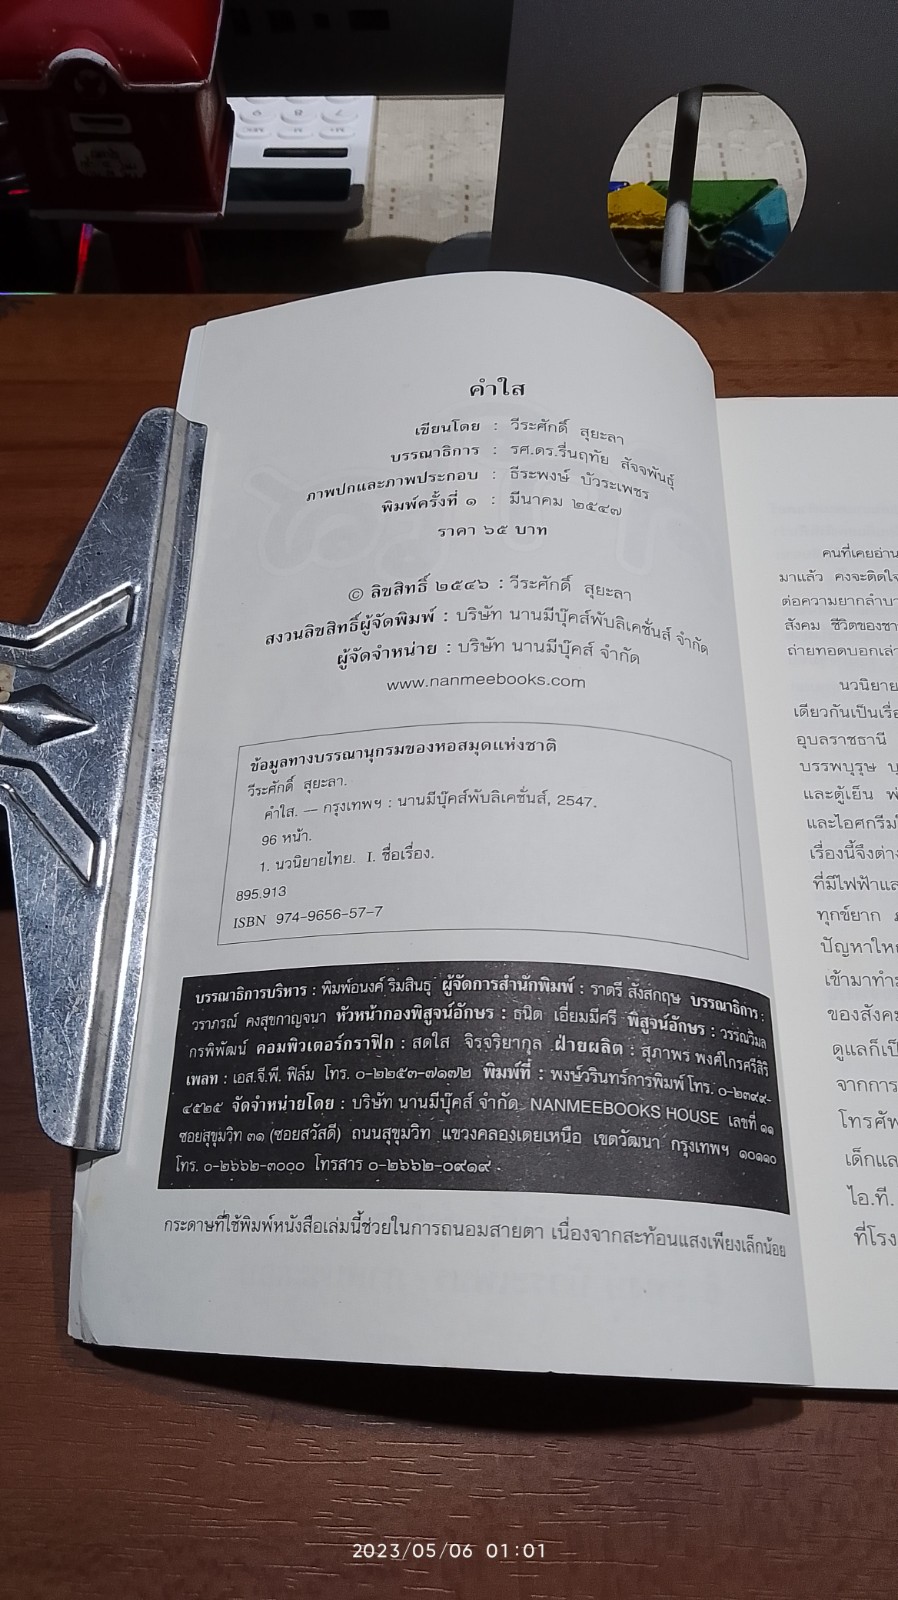 คำใส
เขียนโดย : วีระศักดิ์ สุยะลา
บรรณาธิการ : รศ.ดร.รื่นฤทัย สัจจพันธุ์
ภาพปกและภาพประกอบ : ธีระพงษ์ บัวระเพชร
พิมพ์ครั้งที่ ๑ : มีนาคม ๒๕๔๗
ราคา ๖๕ บาท
© ลิขสิทธิ์ ๒๕๔๖ : วีระศักดิ์ สุยะลา
สงวนลิขสิทธิ์ผู้จัดพิมพ์ : บริษัท นานมีบุ๊คส์พับลิเคชั่นส์ จำกัด
ผู้จัดจำหน่าย : บริษัท นานมีบุ๊คส์ จำกัด
www.nanmeebooks.com
ข้อมูลทางบรรณานุกรมของหอสมุดแห่งชาติ
วีระศักดิ์ สุยะลา.
คำใส. — กรุงเทพฯ : นานมีบุ๊คส์พับลิเคชั่นส์, 2547.
96 หน้า.
1. นวนิยายไทย. I. ชื่อเรื่อง.
895.913
ISBN 974-9656-57-7
บรรณาธิการบริหาร : พิมพ์อนงค์ ริมสินธุ ผู้จัดการสำนักพิมพ์ : ราตรี สังสกฤษ บรรณาธิการ :
วราภรณ์ คงสุขกาญจนา หัวหน้ากองพิสูจน์อักษร : ธนิด เอี่ยมมีศรี พิสูจน์อักษร : วรรณวิมล
กรพิพัฒน์ คอมพิวเตอร์กราฟิก : สดใส จิรจริยากุล ฝ่ายผลิต : สุภาพร พงศ์ไกรศรีสิริ
เพลท : เอส.จี.พี. ฟิล์ม โทร. ๐-๒๒๕๓-๗๑๗๒ พิมพ์ที่ : พงษ์วรินทร์การพิมพ์ โทร. ๐-๒๓๙๙-
๔๕๒๕ จัดจำหน่ายโดย : บริษัท นานมีบุ๊คส์ จำกัด NANMEEBOOKS HOUSE เลขที่ ๑๑
ซอยสุขุมวิท ๓๑ (ซอยสวัสดี) ถนนสุขุมวิท แขวงคลองเตยเหนือ เขตวัฒนา กรุงเทพฯ ๑๐๑๑๐
โทร. ๐-๒๖๖๒-๓๐๐๐ โทรสาร ๐-๒๖๖๒-๐๙๑๙
กระดาษที่ใช้พิมพ์หนังสือเล่มนี้ช่วยในการถนอมสายตา เนื่องจากสะท้อนแสงเพียงเล็กน้อย
คนที่เคยอ่าน
มาแล้ว คงจะติดใจ
ต่อความยากลำบา
สังคม ชีวิตของชา
ถ่ายทอดบอกเล่า
นวนิยาย
เดียวกันเป็นเรื่อ
อุบลราชธานี
บรรพบุรุษ
และตู้เย็น
และไอศกรีม
เรื่องนี้จึงต่าง
ที่มีไฟฟ้าแล
ทุกข์ยาก
ปัญหาให
เข้ามาทำร
ของสังคม
ดูแลก็เป็
จากการ
โทรศัพ
เด็กแล
ไอ.ที.
ที่โรง
2023/05/06 01:01